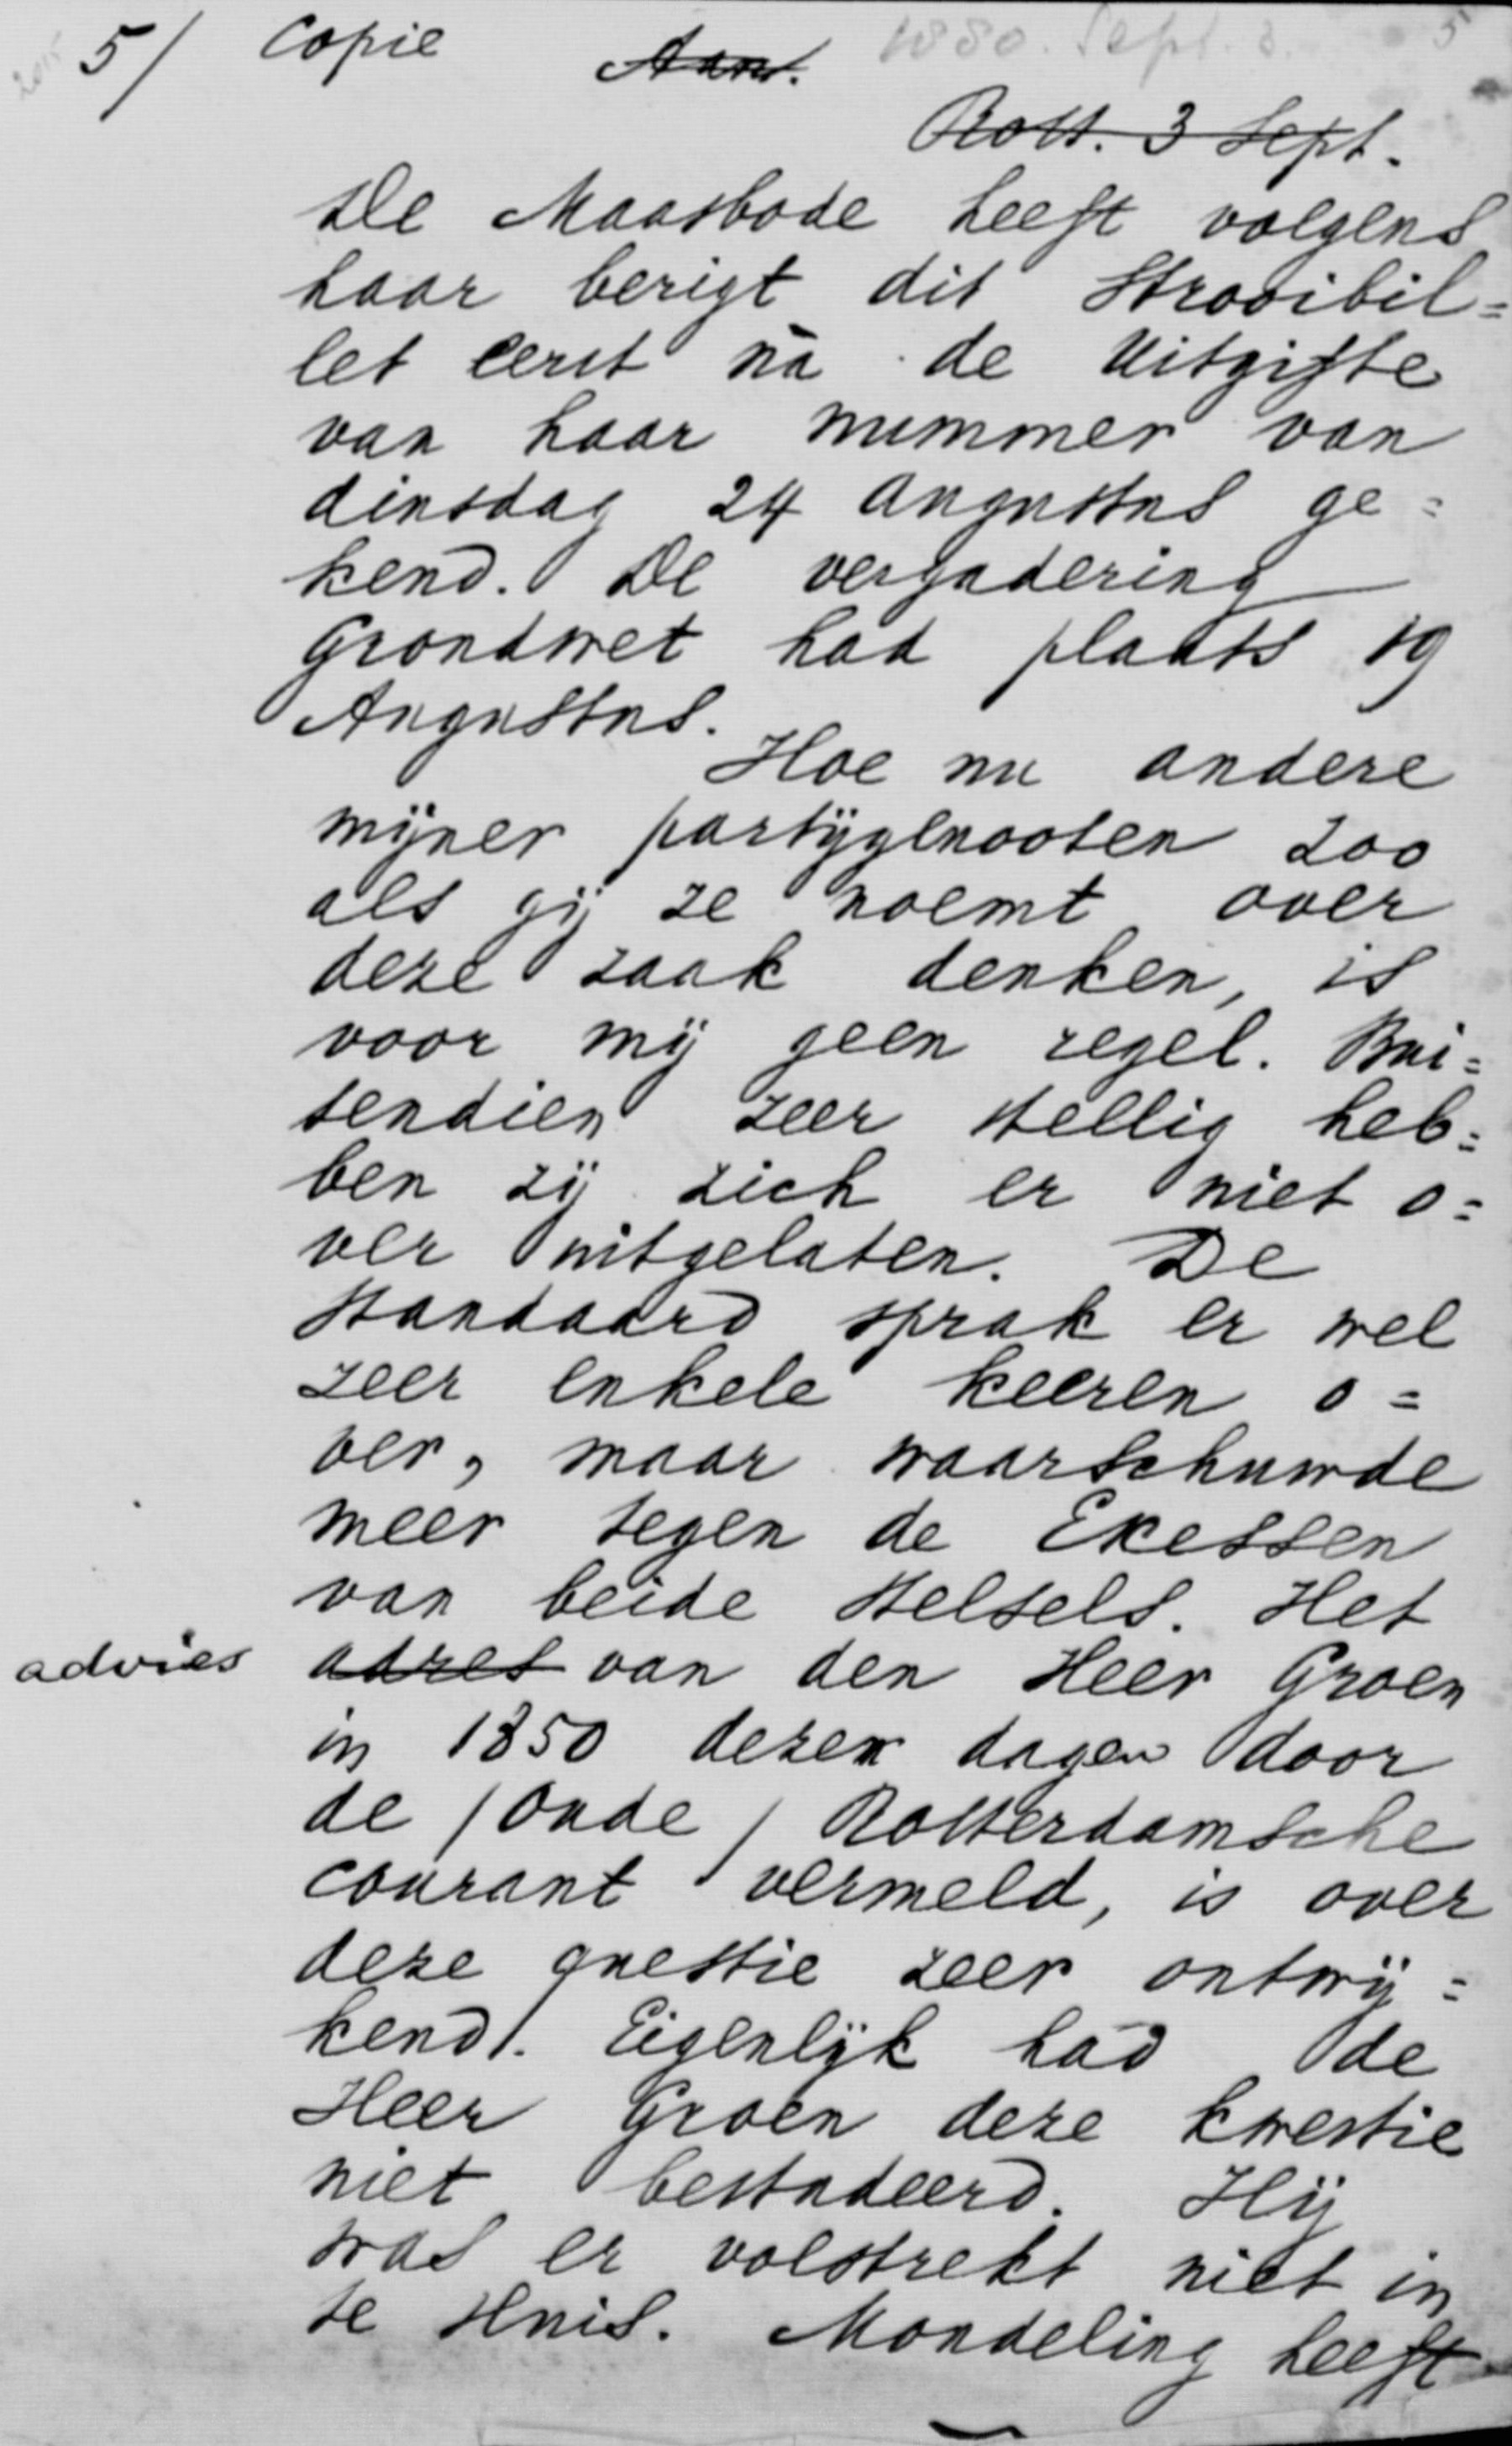 5/ Copie ~~Aant.~~ 1880. Sept. 3. 5
~~Rott. 3 Sept.~~
De Maasbode heeft volgens
haar berigt dit Strooibil=
let eerst nà de Uitgifte
van haar nummer van
dinsdag 24 Augustus ge=
kend. De vergadering
Grondwet had plaats 19
Augustus.
Hoe nu andere
mijner partijgenooten zoo
als gij ze noemt over
deze zaak denken, is
voor mij geen regel. Bui=
tendien zeer stellig heb=
ben zij zich er niet o=
ver uitgelaten. De
Standaard sprak er wel
zeer enkele keeren o=
ver, maar waarschuwde
meer tegen de Excessen
van beide Stelsels. Het
advies ~~adres~~ van den Heer Groen
in 1850 dezer dagen door
de /Oude/ Rotterdamsche
courant vermeld, is over
deze questie zeer ontwij=
kend. Eigenlijk had de
Heer Groen deze kwestie
niet bestudeerd. Hij
was er volstrekt niet in
te Huis. Mondeling heeft